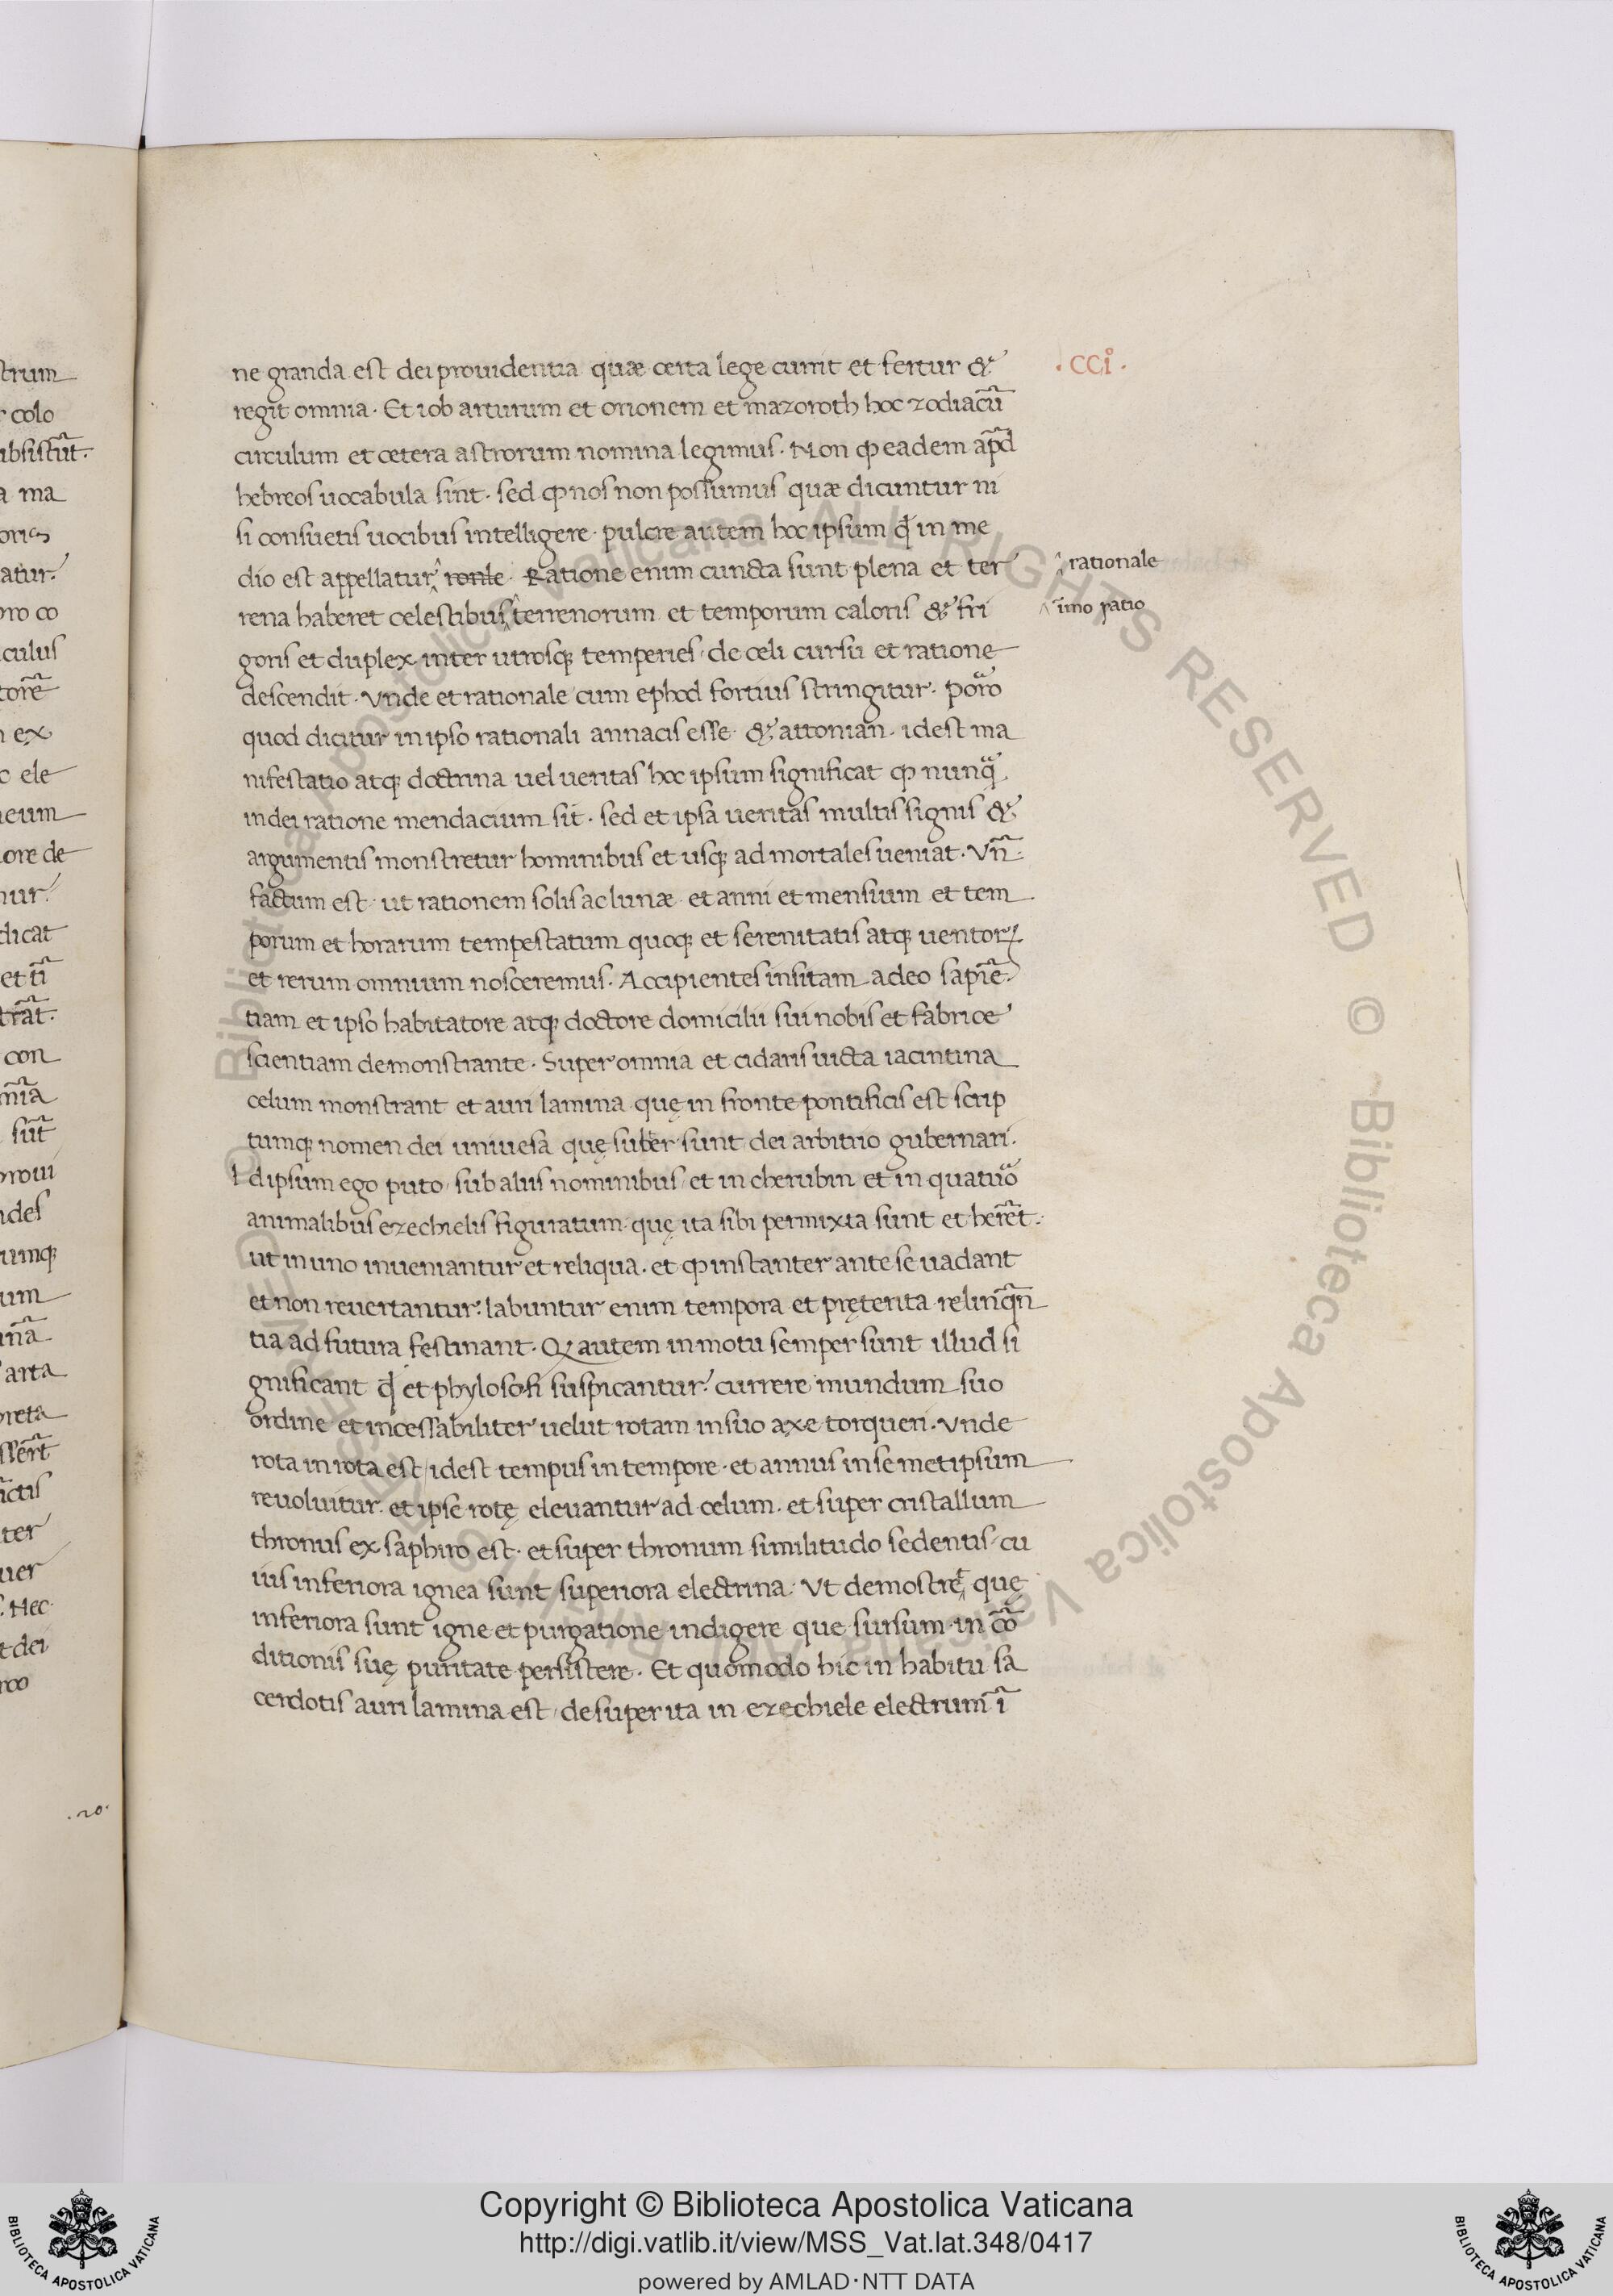 ne granda est dei prouidentia quæ certa lege currit et fertur &
regit omnia. Et iob arturum et orionem et mazoroth hoc zodiacũ
circulum et cetera astrorum nomina legimus. Non ꝙ eadem apđ
hebreos uocabula sint. sed ꝙ nos non possumus quæ dicuntur ni
si consuetis uocibus intelligere. pulcre autem hoc ipsum qđ in me
dio est appellatur ronle. Ratione enim cuncta sunt plena et ter
rena haberet celestibus terrenorum et temporum caloris & fri
goris et duplex inter utrosq; temperies. de celi cursu et ratione
descendit. Vnde et rationale cum ephod fortius stringitur. porro
quod dicitur in ipso rationali annacis esse. & attonian. idest ma
nifestatio atq; doctrina uel ueritas hoc ipsum significat ꝙ nunq̃
in dei ratione mendacium sit. sed et ipsa ueritas multis signis &
argumentis monstretur hominibus et usq; ad mortales ueniat. Vñ
factum est. ut rationem solis ac lunæ et anni et mensium et tem
porum et horarum tempestatum quoq; et serenitatis atq; uentorꝝ
et rerum omnium nosceremus. Accipientes insitam a deo sapiẽ
tiam et ipso habitatore atq; doctore domicilii sui nobis et fabrice
scientiam demonstrante. Super omnia et cidaris uicta iacintina
celum monstrant et auri lamina quę in fronte pontificis est scrip
tumq; nomen dei uniuesa quę subter sunt dei arbitrio gubernari.
Id ipsum ego puto sub aliis nominibus et in cherubin et in quatuõ
animalibus ezechielis figuratum quę ita sibi permixta sunt et herẽt.
ut in uno inueniantur et reliqua. et ꝙ instanter ante se uadant
et non reuertantur. labuntur enim tempora et pręterita relinq̃n
tia ad futura festinant. Q autem in motu semper sunt illud si
gnificant qđ et phylosofi suspicantur. currere mundum suo
ordine et incessabiliter uelut rotam in suo axe torqueri. Vnde
rota in rota est / idest tempus in tempore. et annus in semetipsum
reuoluitur. et ipse rotę eleuantur ad celum. et super cristallum
thronus ex saphiro est. et super thronum similitudo sedentis / cu
ius inferiora ignea sunt superiora electrina. Vt demostret quę
inferiora sunt igne et purgatione indigere que sursum in cõ
ditionis suę puritate persistere. Et quomodo hic in habitu sa
cerdotis auri lamina est / desuper ita in ezechiele electrum ĩ
. CCI .
rationale
imo ratio
trum
r colo
ibsistũt.
a ma
atur.
oro co
culus
torẽ
n ex
o ele
eum
ore de
nur.
dicat
et tĩ
trãt.
con
mĩa
sũt
proui
ides
umq;
um
arta
preta
ictis
ter
uer
. Hec
t dei
. 20 .
© Biblioteca Apostolica Vaticana ALL RIGHTS RESERVED © Biblioteca Apostolica Vaticana ALL RIGHTS RESERVED
BIBLIOTECA APOSTOLICA VATICANA
Copyright © Biblioteca Apostolica Vaticana
http://digi.vatlib.it/view/MSS_Vat.lat.348/0417
powered by AMLAD·NTT DATA
BIBLIOTECA APOSTOLICA VATICANA